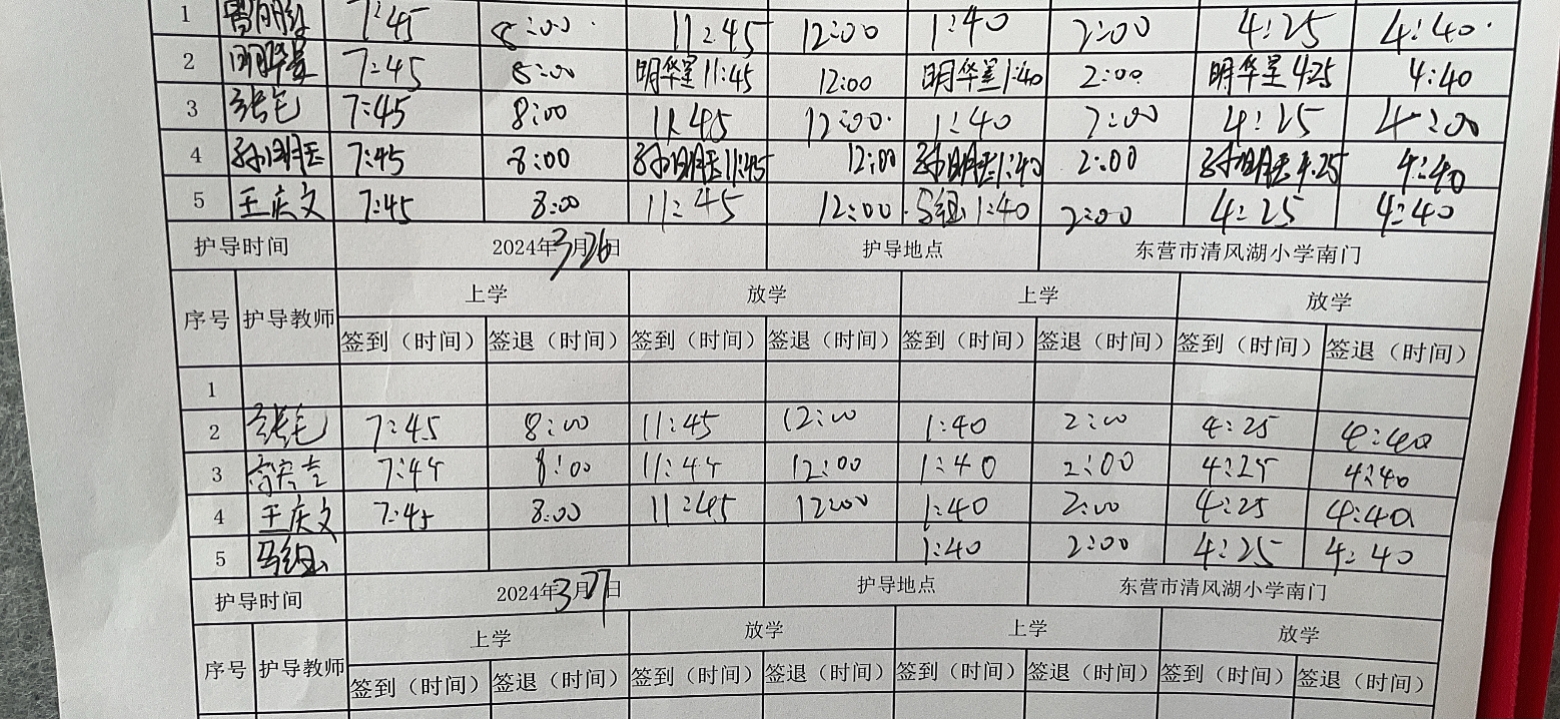 1 7:45 8:00 11:45 12:00 1:40 2:00 4:25 4:40
2 明华星 7:45 8:00 明华星 11:45 12:00 明华星 1:40 2:00 明华星 4:25 4:40
3 7:45 8:00 11:45 12:00 1:40 2:00 4:25 4:00
4 7:45 8:00 11:45 12:00 1:40 2:00 4:25 4:40
5 王庆文 7:45 8:00 11:45 12:00 1:40 2:00 4:25 4:40
护导时间 2024年3月26日 护导地点 东营市清风湖小学南门
序号 护导教师 上学 放学 上学 放学
签到（时间） 签退（时间） 签到（时间） 签退（时间） 签到（时间） 签退（时间） 签到（时间） 签退（时间）
1
2 7:45 8:00 11:45 12:00 1:40 2:00 4:25 4:40
3 7:45 8:00 11:45 12:00 1:40 2:00 4:25 4:40
4 王庆文 7:45 8:00 11:45 12:00 1:40 2:00 4:25 4:40
5 1:40 2:00 4:25 4:40
护导时间 2024年3月27日 护导地点 东营市清风湖小学南门
序号 护导教师 上学 放学 上学 放学
签到（时间） 签退（时间） 签到（时间） 签退（时间） 签到（时间） 签退（时间） 签到（时间） 签退（时间）